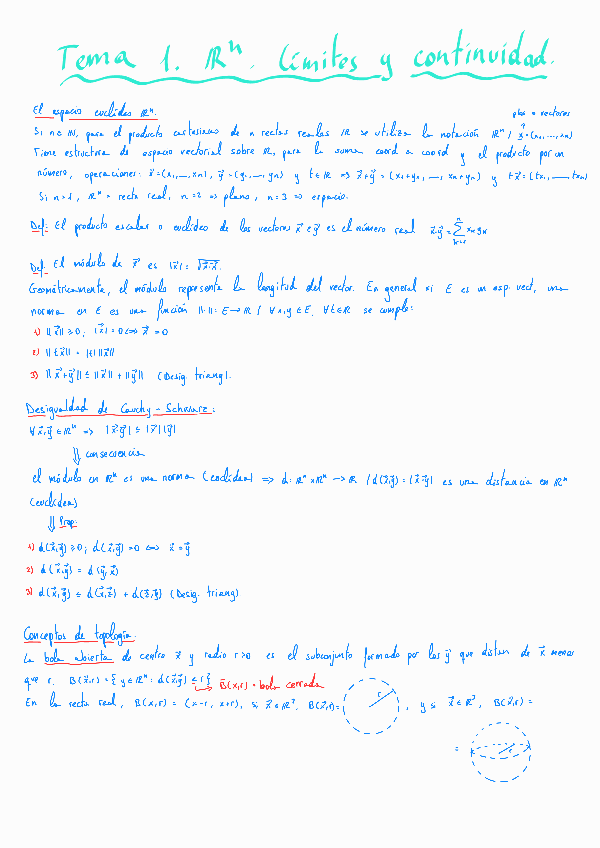 Tema 1. ℝⁿ. Límites y continuidad.
El espacio euclídeo ℝⁿ.
ptos = vectores
Si n ∈ ℕ, para el producto cartesiano de n rectas reales ℝ se utiliza la notación ℝⁿ / x⃗ = (x₁, ..., xₙ)
Tiene estructura de espacio vectorial sobre ℝ, para la suma coord a coord y el producto por un
número, operaciones: x⃗ = (x₁, ..., xₙ), y⃗ = (y₁, ..., yₙ) y t ∈ ℝ ⇒ x⃗+y⃗ = (x₁+y₁, ..., xₙ+yₙ) y tx⃗ = (tx₁, ..., txₙ)
Si n=1, ℝⁿ = recta real, n=2 ⇒ plano, n=3 ⇒ espacio.
Def: El producto escalar o euclídeo de los vectores x⃗ e y⃗ es el número real x⃗·y⃗ = ∑ₖ₌₁ⁿ xₖyₖ
Def: El módulo de x⃗ es |x⃗| = √x⃗·x⃗.
Geométricamente, el módulo representa la longitud del vector. En general si E es un esp. vect, una
norma en E es una función ||·||: E → ℝ / ∀x,y ∈ E, ∀t ∈ ℝ se cumple:
1) ||x⃗|| ≥ 0; |x⃗| = 0 ⇔ x⃗ = 0
2) ||tx⃗|| = |t| ||x⃗||
3) ||x⃗+y⃗|| ≤ ||x⃗|| + ||y⃗|| (Desig. triang).
Desigualdad de Cauchy - Schwarz:
∀x⃗,y⃗ ∈ ℝⁿ ⇒ |x⃗·y⃗| ≤ |x⃗| |y⃗|
⇓ consecuencia
el módulo en ℝⁿ es una norma (euclídea) ⇒ d: ℝⁿ×ℝⁿ → ℝ / d(x⃗,y⃗) = |x⃗-y⃗| es una distancia en ℝⁿ
(euclídea)
⇓ Prop:
1) d(x⃗,y⃗) ≥ 0; d(x⃗,y⃗) = 0 ⇔ x⃗ = y⃗
2) d(x⃗,y⃗) = d(y⃗,x⃗)
3) d(x⃗,y⃗) ≤ d(x⃗,z⃗) + d(z⃗,y⃗) (Desig. triang)
Conceptos de topología.
La bola abierta de centro x⃗ y radio r>0 es el subconjunto formado por los y⃗ que distan de x⃗ menos
que r. B(x⃗,r) = { y ∈ ℝⁿ : d(x⃗,y⃗) < r }
→ B̄(x,r) = bola cerrada
En la recta real, B(x,r) = (x-r, x+r), si x⃗ ∈ ℝ², B(x⃗,r) = r, y si x⃗ ∈ ℝ³, B(x⃗,r) =
= r